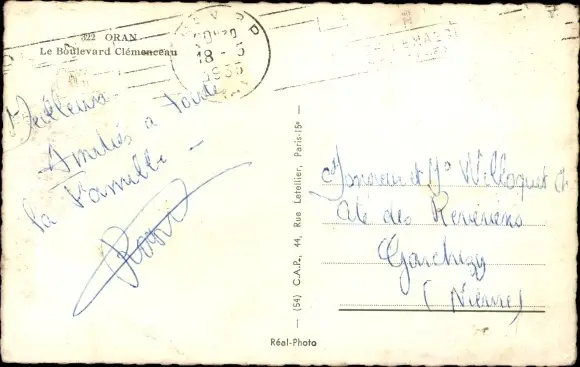 322 ORAN
Le Boulevard Clémenceau
18 - 3
1955
Meilleures
Amitiés a toute
la Famille -
Monsieur et Me Willoquet
Cité des
Garchizy
(Nièvre)
(54) C.A.P., 44, Rue Letellier, Paris-15e
Réal-Photo